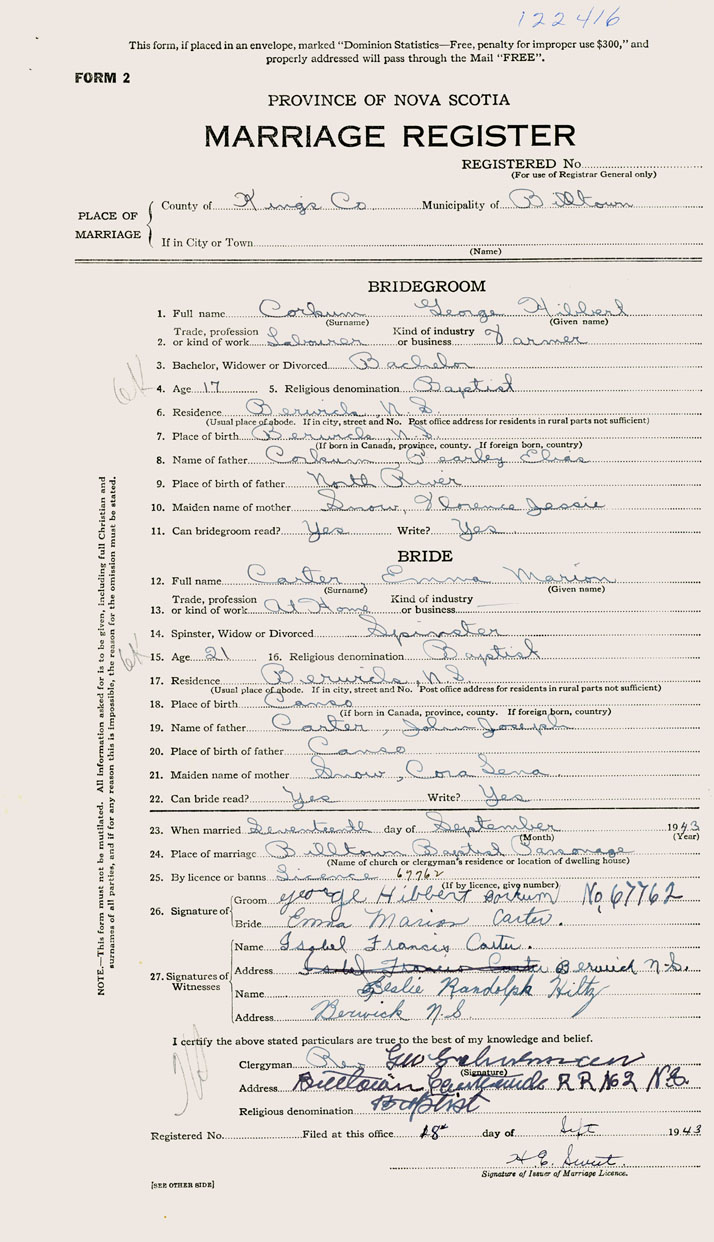 122416
This form, if placed in an envelope, marked "Dominion Statistics—Free, penalty for improper use $300," and
properly addressed will pass through the Mail "FREE".
FORM 2
PROVINCE OF NOVA SCOTIA
MARRIAGE REGISTER
REGISTERED No.
(For use of Registrar General only)
PLACE OF MARRIAGE
County of Kings Co Municipality of Billtown
If in City or Town
(Name)
BRIDEGROOM
1. Full name Corkum George Hibbert
(Surname) (Given name)
2. Trade, profession or kind of work Labourer Kind of industry or business Farmer
3. Bachelor, Widower or Divorced Bachelor
4. Age 17 5. Religious denomination Baptist
6. Residence Berwick, N.S.
(Usual place of abode. If in city, street and No. Post office address for residents in rural parts not sufficient)
7. Place of birth Berwick, N.S.
(If born in Canada, province, county. If foreign born, country)
8. Name of father Corkum, Pearley Elias
9. Place of birth of father North River
10. Maiden name of mother Snow, Florence Jessie
11. Can bridegroom read? Yes Write? Yes
BRIDE
12. Full name Carter, Emma Marion
(Surname) (Given name)
13. Trade, profession or kind of work At Home Kind of industry or business
14. Spinster, Widow or Divorced Spinster
15. Age 21 16. Religious denomination Baptist
17. Residence Berwick, N.S.
(Usual place of abode. If in city, street and No. Post office address for residents in rural parts not sufficient)
18. Place of birth Canso
(If born in Canada, province, county. If foreign born, country)
19. Name of father Carter, John Joseph
20. Place of birth of father Canso
21. Maiden name of mother Snow, Cora Lena
22. Can bride read? Yes Write? Yes
23. When married Seventeenth day of September 1943
(Month) (Year)
24. Place of marriage Billtown Baptist Parsonage
(Name of church or clergyman's residence or location of dwelling house)
25. By licence or banns Licence 67762
(If by licence, give number)
26. Signature of
Groom George Hibbert Corkum No, 67762
Bride Emma Marion Carter.
27. Signatures of Witnesses
Name Isabel Francis Carter.
Address Isabel Francis Carter Berwick N.S.
Name Leslie Randolph Hiltz
Address Berwick N.S
I certify the above stated particulars are true to the best of my knowledge and belief.
Clergyman Rev Geo
(Signature)
Address Billtown RR No2 N.S.
Religious denomination Baptist
Registered No. Filed at this office 18th day of Sept 1943
H.E. Sweet.
Signature of Issuer of Marriage Licence.
[SEE OTHER SIDE]
NOTE.—This form must not be mutilated. All information asked for is to be given, including full Christian and
surnames of all parties, and if for any reason this is impossible, the reason for the omission must be stated.